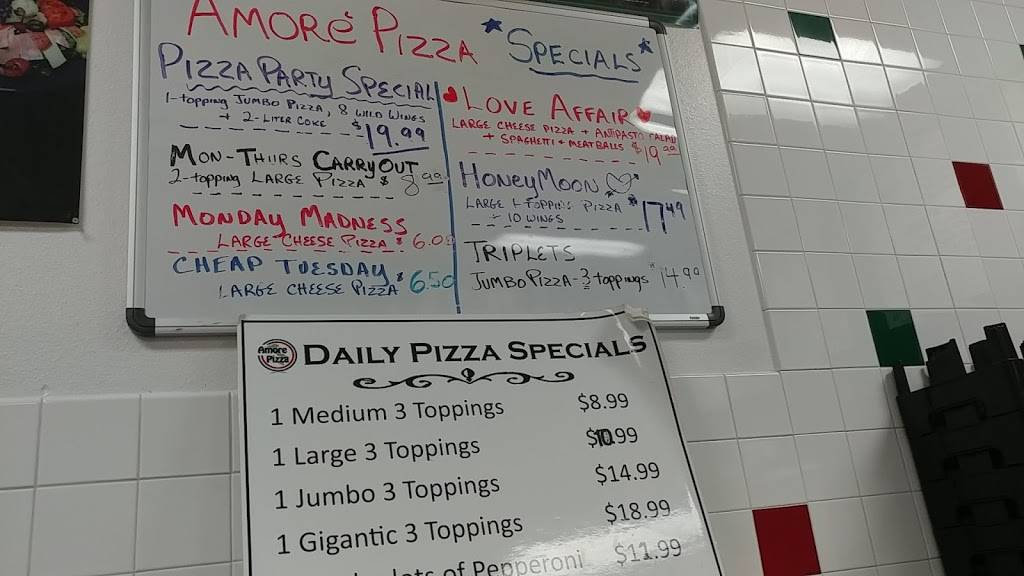 AMORé PIZZA
SPECIALS
PIZZA PARTY SPECIAL
1-topping JUMBO PIZZA, 8 WILD WINGS
+ 2-LITER COKE $19.99
MON-THURS CARRYOUT
2-topping LARGE PIZZA $ 8.99
MONDAY MADNESS
LARGE CHEESE PIZZA $ 6.00
CHEAP TUESDAY
LARGE CHEESE PIZZA $ 6.50
LOVE AFFAIR
LARGE CHEESE PIZZA + ANTIPASTO SALAD
+ SPAGHETTI + MEATBALLS $19.99
HONEYMOON
LARGE 1-TOPPING PIZZA $17.49
+ 10 WINGS
TRIPLETS
JUMBO PIZZA-3 toppings $14.99
Amore Pizza
DAILY PIZZA SPECIALS
1 Medium 3 Toppings $8.99
1 Large 3 Toppings $10.99
1 Jumbo 3 Toppings $14.99
1 Gigantic 3 Toppings $18.99
lots of Pepperoni $11.99